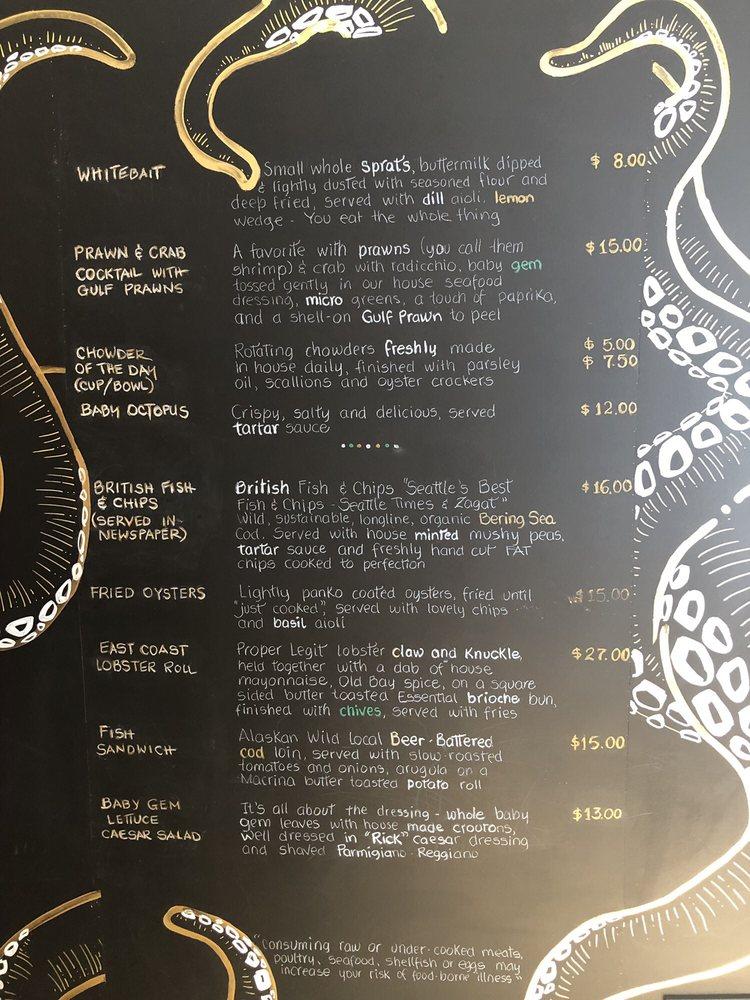 WHITEBAIT
Small whole sprats, buttermilk dipped
& lightly dusted with seasoned flour and
deep fried, served with dill aioli. lemon
wedge - You eat the whole thing
$ 8.00
PRAWN & CRAB
COCKTAIL WITH
GULF PRAWNS
A favorite with prawns (you call them
shrimp) & crab with radicchio, baby gem
tossed gently in our house seafood
dressing, micro greens, a touch of paprika,
and a shell-on Gulf Prawn to peel
$15.00
CHOWDER
OF THE DAY
(CUP/BOWL)
Rotating chowders freshly made
in house daily, finished with parsley
oil, scallions and oyster crackers
$ 5.00
$ 7.50
BABY OCTOPUS
Crispy, salty and delicious, served
tartar sauce
$12.00
BRITISH FISH
& CHIPS
(SERVED IN
NEWSPAPER)
British Fish & Chips "Seattle's Best
Fish & Chips - Seattle Times & Zagat"
Wild, sustainable, longline, organic Bering Sea
Cod. Served with house minted mushy peas,
tartar sauce and freshly hand cut FAT
chips cooked to perfection
$16.00
FRIED OYSTERS
Lightly panko coated oysters, fried until
"just cooked", served with lovely chips
and basil aioli
$15.00
EAST COAST
LOBSTER ROLL
Proper Legit lobster claw and Knuckle,
held together with a dab of house
mayonnaise, Old Bay spice, on a square
sided butter toasted Essential brioche bun,
finished with chives, served with fries
$27.00
FISH
SANDWICH
Alaskan Wild local Beer-Battered
cod loin, served with slow-roasted
tomatoes and onions, arugula on a
Macrina butter toasted potato roll
$15.00
BABY GEM
LETTUCE
CAESAR SALAD
It's all about the dressing - whole baby
gem leaves with house made croutons,
well dressed in "Rick" caesar dressing
and shaved Parmigiano-Reggiano
$13.00
"consuming raw or under-cooked meats,
poultry, seafood, shellfish or eggs may
increase your risk of food-borne illness"